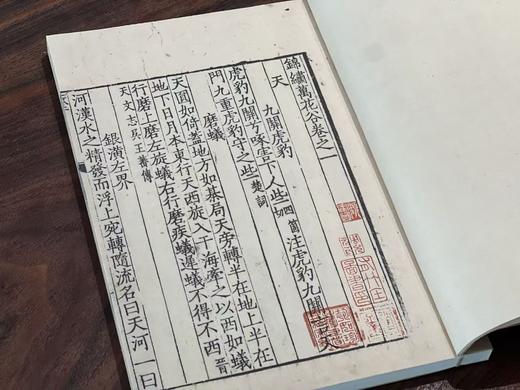 錦繡萬花谷卷之一
天
九關虎豹
虎豹九關啄害下人些四箇切注虎豹九關言天
門九重虎豹守之些楚詞
磨蟻
天圓如倚蓋地方如棊局天旁轉半在地上半在
地下日月本東行天西旋入于海牽之以西如蟻
行磨上磨左旋蟻右行磨疾蟻遲蟻不得不西晉
天文志及王蕃傳
銀潢左界
河漢水之精發而浮上宛轉隨流名曰天河一曰